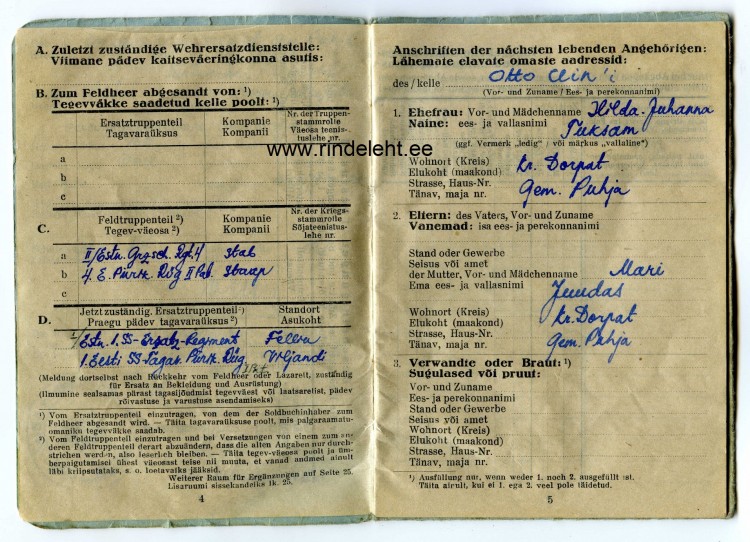 A. Zuletzt zuständige Wehrersatzdienststelle:
Viimane pädev kaitseväeringkonna asutis:
B. Zum Feldheer abgesandt von: ¹)
Tegevväkke saadetud kelle poolt: ¹)
Ersatztruppenteil
Tagavaraüksus
Kompanie
Kompanii
Nr. der Truppen-
stammrolle
Väeosa teenis-
tuslehe nr.
a
b
c
www.rindeleht.ee
C.
Feldtruppenteil ²)
Tegev-väeosa ²)
Kompanie
Kompanii
Nr. der Kriegs-
stammrolle
Sõjateenistus-
lehe nr.
a II/Estn. Grzsch. Rgt. 4 Stab
b 4. E. Piirk. Rüg II Pat. Staap
c
D.
Jetzt zuständig. Ersatztruppenteil ²)
Praegu pädev tagavaraüksus ²)
Standort
Asukoht
Estn. 1. SS-Ersatz-Regiment Fellin
1. Eesti SS-Tagav. Rüg. Viljandi
(Meldung dortselbst nach Rückkehr vom Feldheer oder Lazarett, zuständig
für Ersatz an Bekleidung und Ausrüstung)
(Ilmumine sealsamas pärast tagasijõudmist tegevväest või laatsaretist, pädev
rõivastuse ja varustuse asendamiseks)
¹) Vom Ersatztruppenteil einzutragen, von dem der Soldbuchinhaber zum
Feldheer abgesandt wird. — Täita tagavaraüksuse poolt, mis palgaraamatu-
omaniku tegevväkke saadab.
²) Vom Feldtruppenteil einzutragen und bei Versetzungen von einem zum an-
deren Feldtruppenteil derart abzuändern, dass die alten Angaben nur durch-
strichen werden, also leserlich bleiben. — Täita tegev-väeosa poolt ja üm-
berpaigutamisel ühest väeosast teise nii muuta, et vanad andmed ainult
läbi kriipsutataks, s. o. loetavaiks jääksid.
Weiterer Raum für Ergänzungen auf Seite 25.
Lisaruumi sissekandeiks lk. 25.
4
Anschriften der nächsten lebenden Angehörigen:
Lähemate elavate omaste aadressid:
des / kelle Otto
(Vor- und Zuname / Ees- ja perekonnanimi)
1. Ehefrau: Vor- und Mädchenname Hilda-Juhanna
Naine: ees- ja vallasnimi Püksam
(ggf. Vermerk „ledig“ / või märkus „vallaline“)
Wohnort (Kreis)
Elukoht (maakond) Kr. Dorpat
Strasse, Haus-Nr.
Tänav, maja nr. Gem. Puhja
2. Eltern: des Vaters, Vor- und Zuname
Vanemad: isa ees- ja perekonnanimi
Stand oder Gewerbe
Seisus või amet
der Mutter, Vor- und Mädchenname Mari
Ema ees- ja vallasnimi Juudas
Wohnort (Kreis)
Elukoht (maakond) Kr. Dorpat
Strasse, Haus-Nr.
Tänav, maja nr. Gem. Puhja
3. Verwandte oder Braut: ¹)
Sugulased või pruut:
Vor- und Zuname
Ees- ja perekonnanimi
Stand oder Gewerbe
Seisus või amet
Wohnort (Kreis)
Elukoht (maakond)
Strasse, Haus-Nr.
Tänav, maja nr.
¹) Ausfüllung nur, wenn weder 1. noch 2. ausgefüllt ist.
Täita ainult, kui ei 1. ega 2. veel pole täidetud.
5